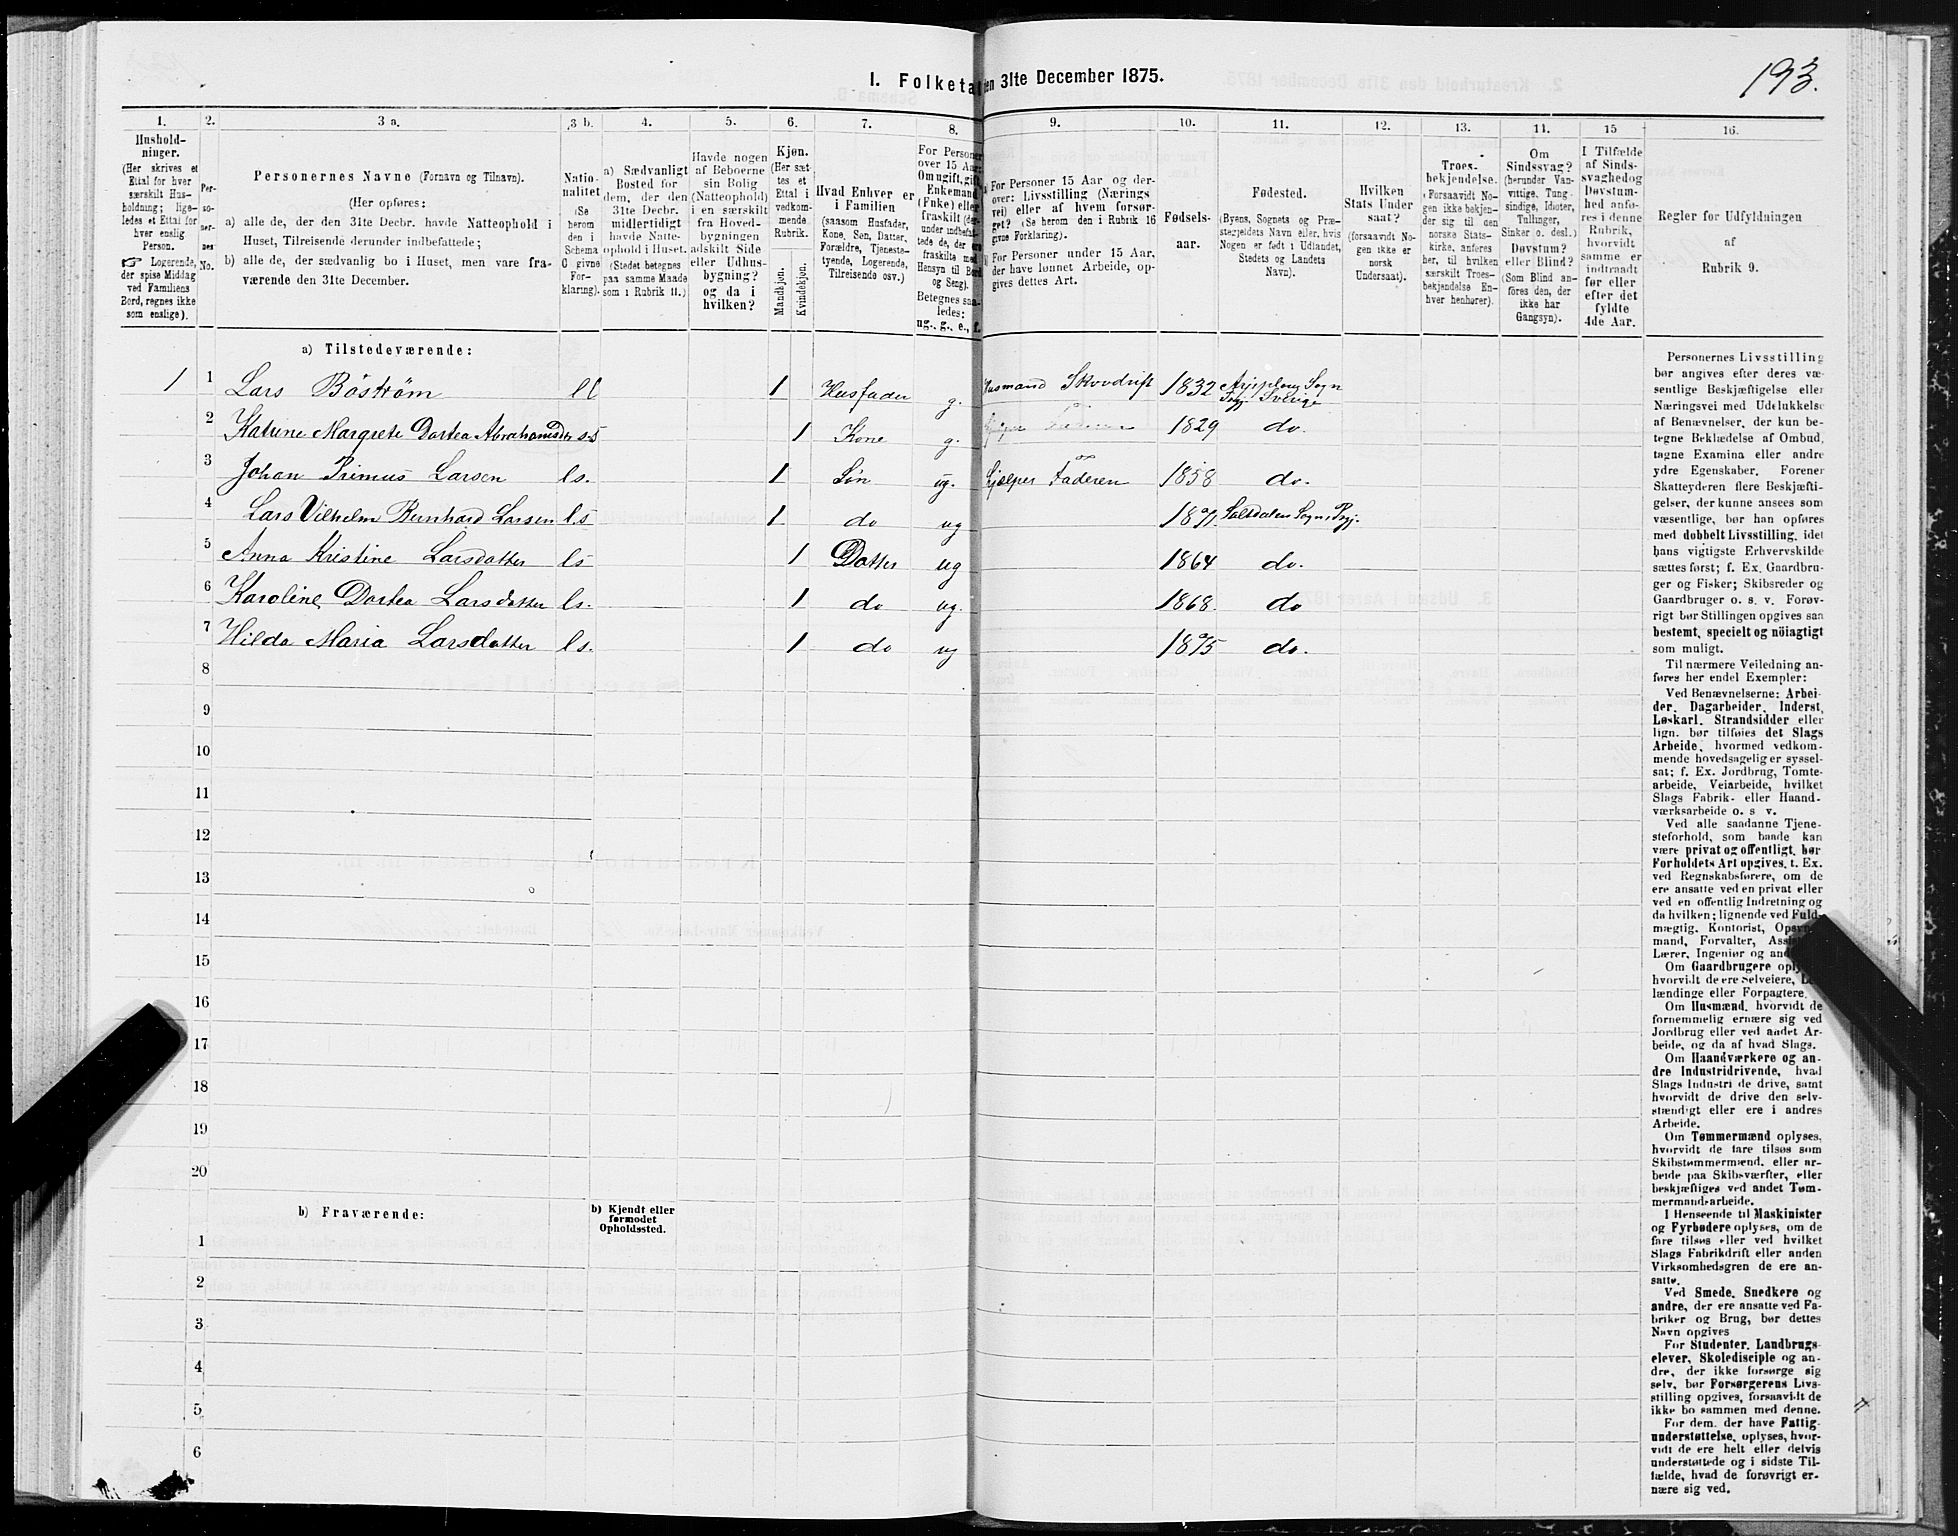 193.
I. Folketa en 31te December 1875.
1. 2. 3 a. 3 b. 4. 5. 6. 7. 8. 9. 10. 11. 12. 13. 14. 15 16.
Hushold-
ninger.
(Her skrives et
Ettal for hver
særskilt Hus-
holdning; lige-
ledes et Ettal for
hver enslig
Person.
☞ Logerende,
der spise Middag
ved Familiens
Bord, regnes ikke
som enslige).
Per-
so-
ner-
nes
No.
Personernes Navne (Fornavn og Tilnavn).
(Her opføres:
a) alle de, der den 31te Decbr. havde Natteophold i
Huset, Tilreisende derunder indbefattede;
b) alle de, der sædvanlig bo i Huset, men vare fra-
værende den 31te December.
Natio-
nalitet
(Se
herom
den i
Schema
C givne
For-
klaring).
a) Sædvanligt
Bosted for
dem, der den
31te Decbr.
midlertidigt
havde Natte-
ophold i Huset.
(Stedet betegnes
paa samme Maade
som i Rubrik 11.)
Havde nogen
af Beboerne
sin Bolig
(Natteophold)
i en særskilt
fra Hoved-
bygningen
adskilt Side
eller Udhus-
bygning?
og da i
hvilken?
Kjøn.
(Her sæt-
tes et
Ettal i
vedkom-
mende
Rubrik.
Mandkjøn.
Kvindekjøn.
Hvad Enhver er
i Familien
(saasom Husfader,
Kone, Søn, Datter,
Forældre, Tjeneste-
tyende, Logerende,
Tilreisende osv.)
For Personer
over 15 Aar:
Om ugift, gift,
Enkemand
(Enke) eller
fraskilt (der-
under indbefat-
tede de, der ere
fraskilte med
Hensyn til Bord
og Seng).
Betegnes saa-
ledes:
ug., g., e., f.
For Personer 15 Aar og der-
over: Livsstilling (Nærings-
vei) eller af hvem forsør-
get? (Se herom den i Rubrik 16
givne Forklaring).
For Personer under 15 Aar,
der have lønnet Arbeide, op-
gives dettes Art.
Fødsels-
aar.
Fødested.
(Byens, Sognets og Præ-
stegjeldets Navn eller, hvis
Nogen er født i Udlandet,
Stedets og Landets
Navn).
Hvilken
Stats Under
saat?
(forsaavidt No-
gen ikke er
norsk
Undersaat).
Troes-
bekjendelse.
(Forsaavidt No-
gen ikke bekjen-
der sig til den
norske Stats-
kirke, anføres
her, til hvilken
særskilt Troes-
bekjendelse En-
hver henhører).
Om
Sindssvag?
(herunder Van-
vittige, Tung-
sindige, Idioter,
Tullinger,
Sinker o. desl.)
Døvstum?
eller Blind?
(Som Blind an-
føres den, der
ikke har
Gangsyn).
I Tilfælde
af Sinds-
svaghed og
Døvstum-
hed anfø-
res i denne
Rubrik,
hvorvidt
samme er
indtraadt
før eller
efter det
fyldte
4de Aar.
Regler for Udfyldningen
af
Rubrik 9.
a) Tilstedeværende:
1 1 Lars Böström ll 1 Husfader g. Husmand Skovdrift 1832 Arjeplong Sogn
Prgj. Sverige
2 Katrine Margrete Dortea Abrahamsdtr s.s 1 Kone g. 1829 do.
3 Johan Primus Larsen ls. 1 Søn ug. hjælper Faderen 1858 do.
4 Lars Vilhelm Bernhard Larsen l.s 1 do ug 1871 Saltdalen Sogn, Prgj.
5 Anna Kristine Larsdatter ls 1 Datter ug 1864 do.
6 Karoline Dortea Larsdatter ls. 1 do ug. 1868. do
7 Hilda Maria Larsdatter ls. 1 do ug 1875 do.
8
9
10
11
12
13
14
15
16
17
18
19
20
b) Fraværende:
b) Kjendt eller
formodet
Opholdssted.
1
2
3
4
5
6
Personernes Livsstilling
bør angives efter deres væ-
sentlige Beskjæftigelse eller
Næringsvei med Udelukkelse
af Benævnelser, der kun be-
tegne Beklædelse af Ombud,
tagne Examina eller andre
ydre Egenskaber. Forener
Skatteyderen flere Beskjæfti-
gelser, der kunne ansees som
væsentlige, bør han opføres
med dobbelt Livsstilling, idet
hans vigtigste Erhvervskilde
sættes først; f. Ex. Gaardbru-
ger og Fisker; Skibsreder og
Gaardbruger o. s. v. Forøv-
rigt bør Stillingen opgives saa
bestemt, specielt og nöiagtigt
som muligt.
Til nærmere Veiledning an-
føres her endel Exempler:
Ved Benævnelserne: Arbei-
der, Dagarbeider, Inderst,
Løskarl, Strandsidder eller
lign. bør tilføies det Slags
Arbeide, hvormed vedkom-
mende hovedsagelig er syssel-
sat; f. Ex. Jordbrug, Tomte-
arbeide, Veiarbeide, hvilket
Slags Fabrik- eller Haand-
værksarbeide o. s v.
Ved alle saadanne Tjene-
steforhold, som baade kan
være privat og offentligt, bør
Forholdets Art opgives, t. Ex.
ved Regnskabsførere, om de
ere ansatte ved en privat eller
ved en offentlig Indretning og
da hvilken; lignende ved Fuld-
mægtig, Kontorist, Opsyns-
mand, Forvalter, Assi
Lærer, Ingeniør og and
Om Gaardbrugere oply
hvorvidt de ere Selveiere, Le
lændinge eller Forpagtere.
Om Husmænd, hvorvidt de
fornemmelig ernære sig ved
Jordbrug eller ved andet Ar-
beide, og da af hvad Slags.
Om Haandværkere og an-
dre Industridrivende, hvad
Slags Industri de drive, samt
hvorvidt de drive den selv-
stændigt eller ere i andres
Arbeide.
Om Tømmermænd oplyses,
hvorvidt de fare tilsøs som
Skibstømmermænd, eller ar-
beide paa Skibsværfter, eller
beskjæftiges ved andet Tøm-
mermandsarbeide.
I Henseende til Maskinister
og Fyrbødere oplyses, om de
fare tilsøs eller ved hvilket
Slags Fabrikdrift eller anden
Virksomhedsgren de ere an-
satte.
Ved Smede, Snedkere og
andre, der ere ansatte ved Fa-
briker og Brug, bør dettes
Navn opgives
For Studenter, Landbrugs-
elever, Skoledisciple og an-
dre, der ikke forsørge sig
selv, bør Forsørgerens Livs-
stilling opgives, forsaavidt de
ikke bo sammen med denne.
For dem, der have Fattig-
understøttelse, oplyses, hvor-
vidt de ere helt eller delvis
understøttede og i sidste Til-
fælde, hvad de forøvrigt er-
nære sig ved.